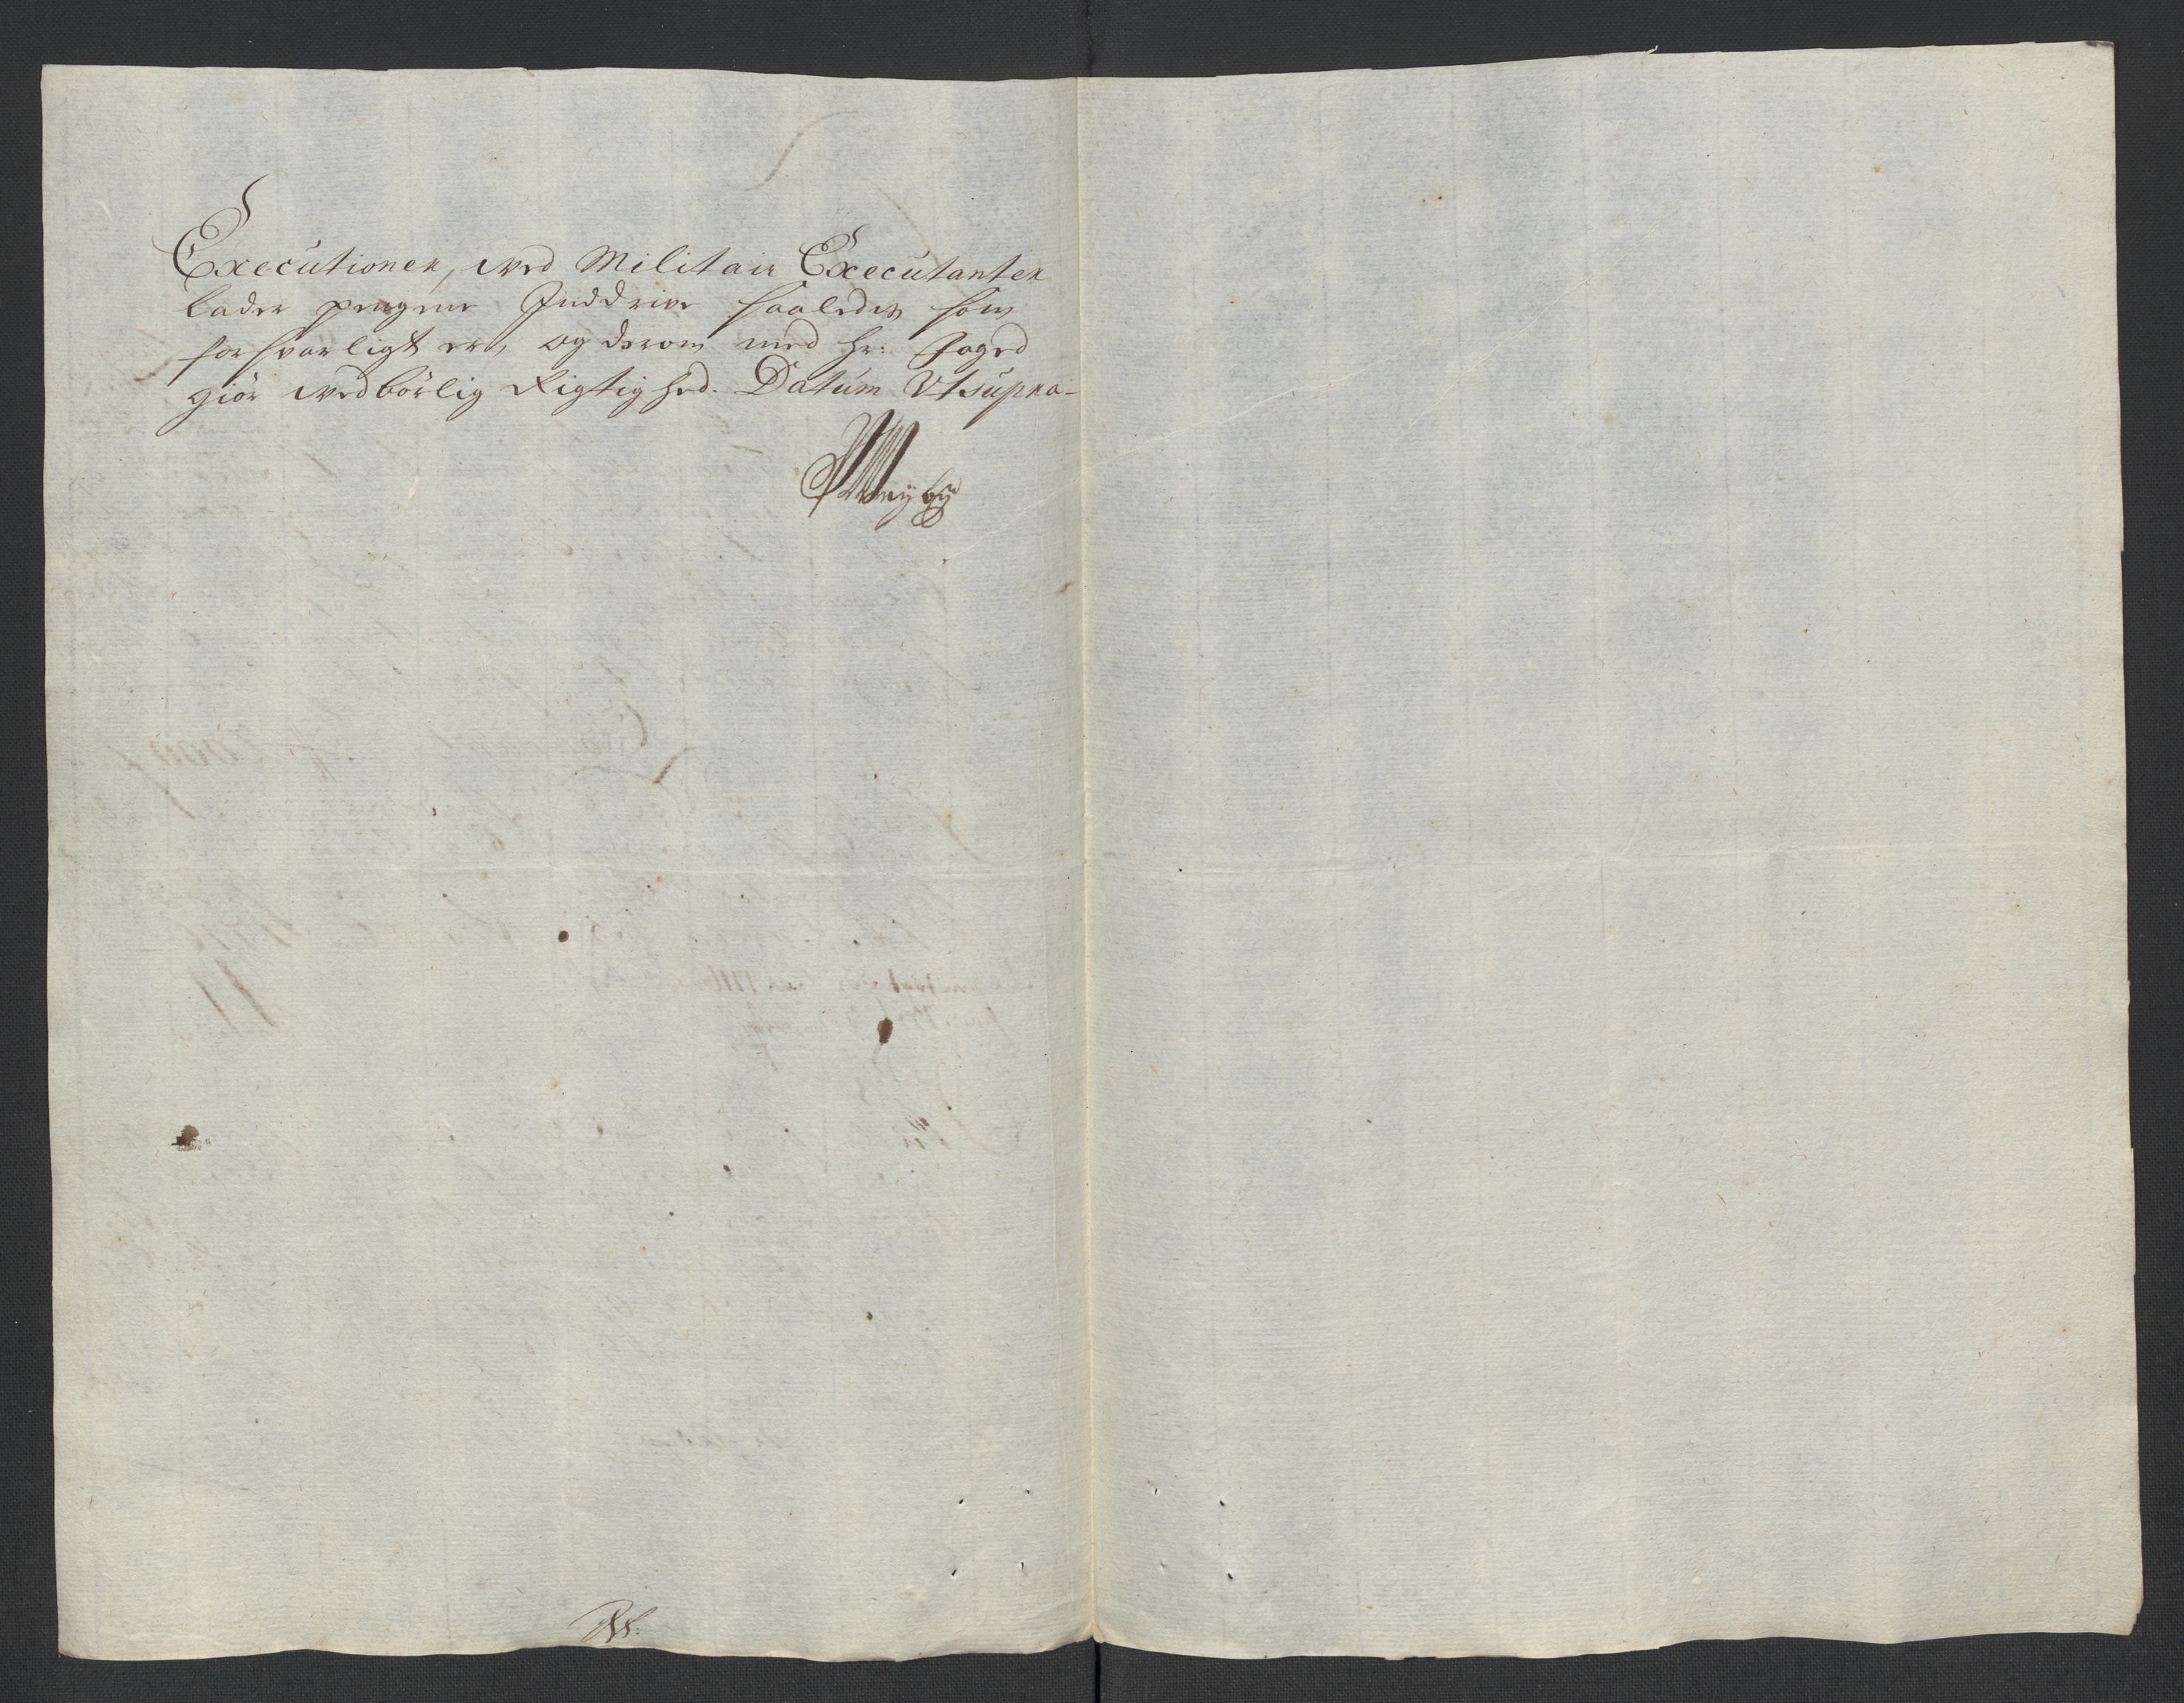 Executionen, ved Militair Executanter
lader pengene Inddrive saaledis som
forsvarligt er, og derom med Hr: Foged
giör vedbörlig Rigtighed. Datum Ut supra-